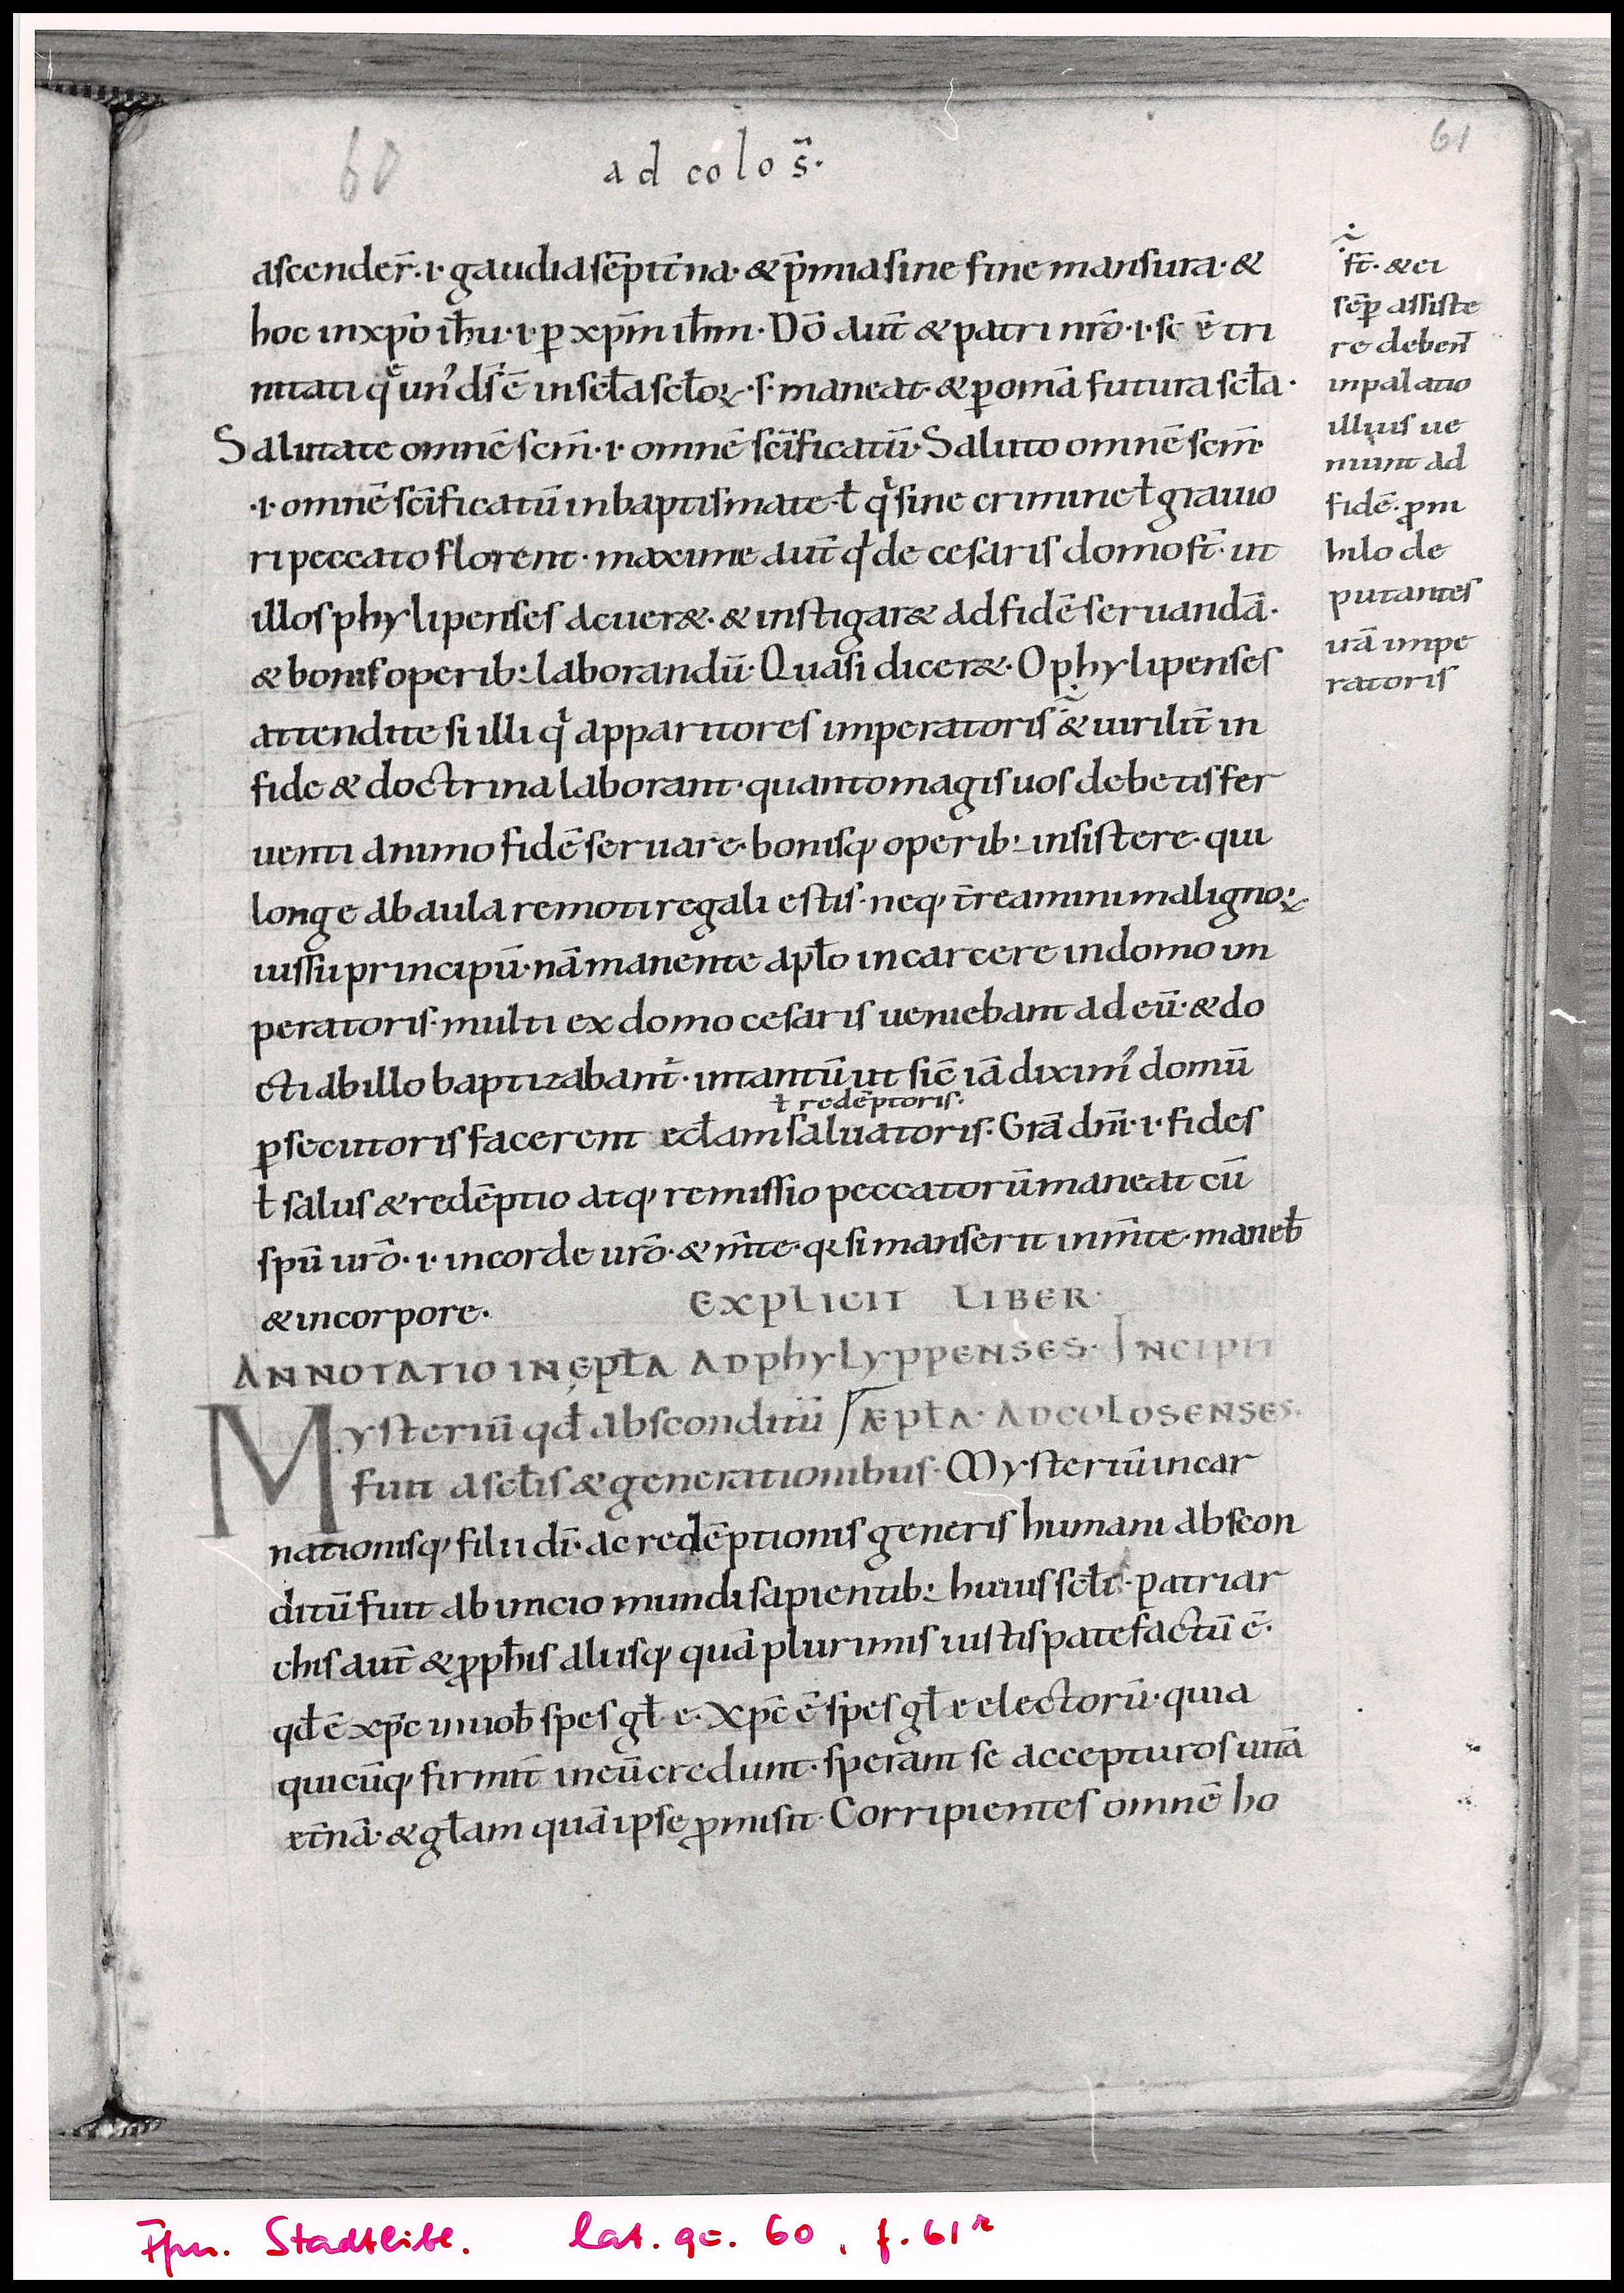 60
ad colos̄·
61
ascender̄·i· gaudia sēpit̄na· & p̄mia sine fine mansura· &
hoc in xp̄o ih̄u·i· ꝑ xp̄m ih̄m· Dō aut̄ & patri nr̄o·i· sc̄ē tri
nitati qͥ un᾽ d̄s ē in sc̄la scl̄oꝝ·s· maneat· & ꝑ omā futura sc̄la·
Salutate omnē sc̄m·i· omnē sc̄ificatū· Saluto omnē sc̄m
·i· omnē sc̄ificatū in baptismate· ł qͥ sine crimine ł grauio
ri peccato florent· maxime aut̄ qͥ de cesaris domo st̄· ut
illos phylipenses acuer&· & instigar& ad fidē seruandā·
& bonis operib; laborandū· Quasi dicer&· O phylipenses
attendite si illi qͥ apparitores imperatoris & uirilit̄ in
fide & doctrina laborant· quanto magis uos debetis fer
uenti animo fidē seruare· bonisq; operib; insistere· qui
longe ab aula remoti regali estis· neq; t̄reamini malignoꝝ
iussu principū· nā manente ap̄lo in carcere in domo im
peratoris· multi ex domo cesaris ueniebant ad eū· & do
cti ab illo baptizabant᾽· intantū ut sic̄ iā dixim᾽ domū
ł redēptoris·
ꝑsecutoris facerent ecl̄am saluatoris· Grā dn̄i·i· fides
ł salus & redēptio atq; remissio peccatorū maneat cū
sp̄u ur̄o·i· in corde ur̄o· & m̄te· q; si manserit in m̄te· maneb̄
& in corpore·
EXPLICIT LIBER·
ANNOTATIO IN EPL̄A AD PHYLYPPENSES· INCIPIT
Mysteriū qđ absconditū ÆPL̄A· AD COLOSENSES·
fuit a sc̄lis & generationibus· Mysteriū incar
nationisq; filii dī· ac redēptionis generis humani abscon
ditū fuit ab inicio mundi sapientib; huius sc̄li· patriar
chis aut̄ & ꝓph̄is aliisq; quā plurimis iustis patefactū ē·
qđ ē xp̄c in uob̄ spes gl̄e· Xp̄c ē spes gl̄e electorū· quia
quicūq; firmit̄ in eū credunt· sperant se accepturos uitā
et̄nā· & gl̄am quā ipse ꝓmisit· Corripientes omnē ho
st̄· & ei
sēꝑ assiste
re deben̄t
in palatio
illius ue
niunt ad
fidē· ꝓ ni
hilo de
putantes
irā impe
ratoris
Ffm. Stadtbibl. lat. qu. 60, f. 61ʳ